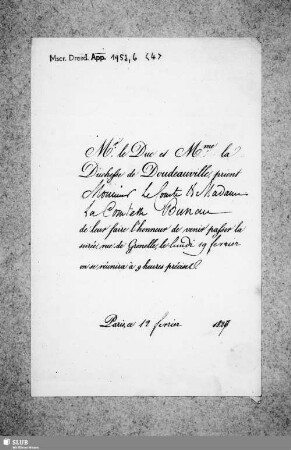 Mscr. Dresd. App. 1952, 6 (4)
Mr. le Duc et Mme. la
Duchesse de Doudeauville, prient
Monsieur le Comte & Madame
La Comtesse
de leur faire l'honneur de venir passer la
soirée, rue de Grenelle, le lundi 19 fevrier
on se réunira à 9 heures précises
Paris, ce 12 fevrier
SLUB